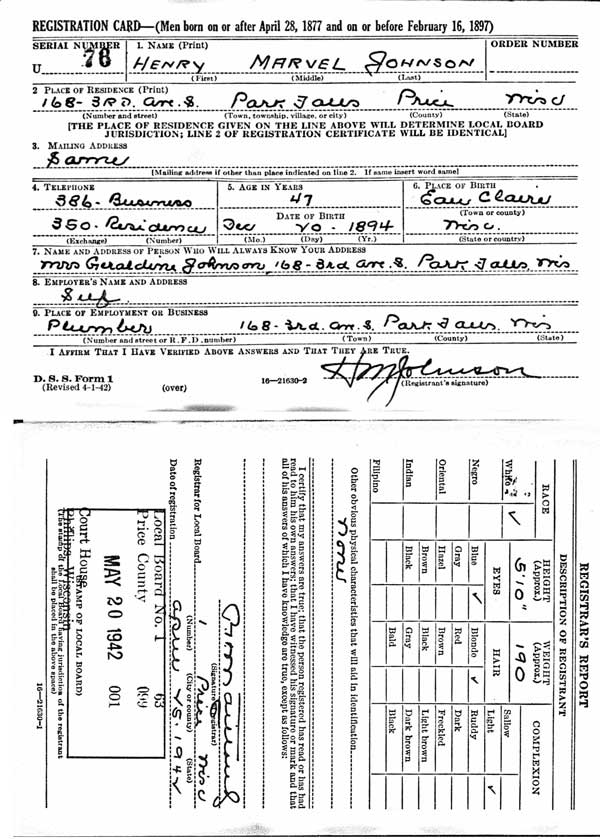 REGISTRATION CARD—(Men born on or after April 28, 1877 and on or before February 16, 1897)
SERIAL NUMBER
1. NAME (Print)
ORDER NUMBER
U 78
HENRY MARVEL JOHNSON
(First) (Middle) (Last)
2 PLACE OF RESIDENCE (Print)
168-3RD. AVE. S. Park Falls Price Wisc
(Number and street) (Town, township, village, or city) (County) (State)
[THE PLACE OF RESIDENCE GIVEN ON THE LINE ABOVE WILL DETERMINE LOCAL BOARD
JURISDICTION; LINE 2 OF REGISTRATION CERTIFICATE WILL BE IDENTICAL]
3. MAILING ADDRESS
Same
[Mailing address if other than place indicated on line 2. If same insert word same]
4. TELEPHONE
5. AGE IN YEARS
6. PLACE OF BIRTH
386-Business
47
Eau Claire
DATE OF BIRTH
(Town or county)
350-Residence
Dec 20 1894
Wisc.
(Exchange) (Number)
(Mo.) (Day) (Yr.)
(State or country)
7. NAME AND ADDRESS OF PERSON WHO WILL ALWAYS KNOW YOUR ADDRESS
Mrs Geraldine Johnson, 168-3rd Ave. S. Park Falls, Wis
8. EMPLOYER'S NAME AND ADDRESS
Self
9. PLACE OF EMPLOYMENT OR BUSINESS
Plumber 168-3rd. Ave. S. Park Falls. Wis
(Number and street or R. F. D. number) (Town) (County) (State)
I AFFIRM THAT I HAVE VERIFIED ABOVE ANSWERS AND THAT THEY ARE TRUE.
D. S. S. Form 1
(Revised 4-1-42)
(over)
16—21630-2
HMJohnson
(Registrant's signature)
REGISTRAR'S REPORT
DESCRIPTION OF REGISTRANT
RACE
HEIGHT (Approx.)
WEIGHT (Approx.)
COMPLEXION
5'10"
190
White ✓
EYES
HAIR
Sallow
Light ✓
Negro
Blue ✓
Blonde ✓
Ruddy
Gray
Red
Dark
Oriental
Hazel
Brown
Freckled
Brown
Black
Light brown
Indian
Black
Gray
Dark brown
Bald
Black
Filipino
Other obvious physical characteristics that will aid in identification
None
I certify that my answers are true; that the person registered has read or has had
read to him his own answers; that I have witnessed his signature or mark and that
all of his answers of which I have knowledge are true, except as follows:
(Signature of registrar)
Registrar for Local Board 1 Price Wisc
(Number) (City or county) (State)
Date of registration April 25, 1942
Local Board No. 1 63
Price County 099
MAY 20 1942 001
Court House
Phillips, Wisconsin
(STAMP OF LOCAL BOARD)
(The stamp of the Local Board having jurisdiction of the registrant
shall be placed in the above space)
16—21630-1